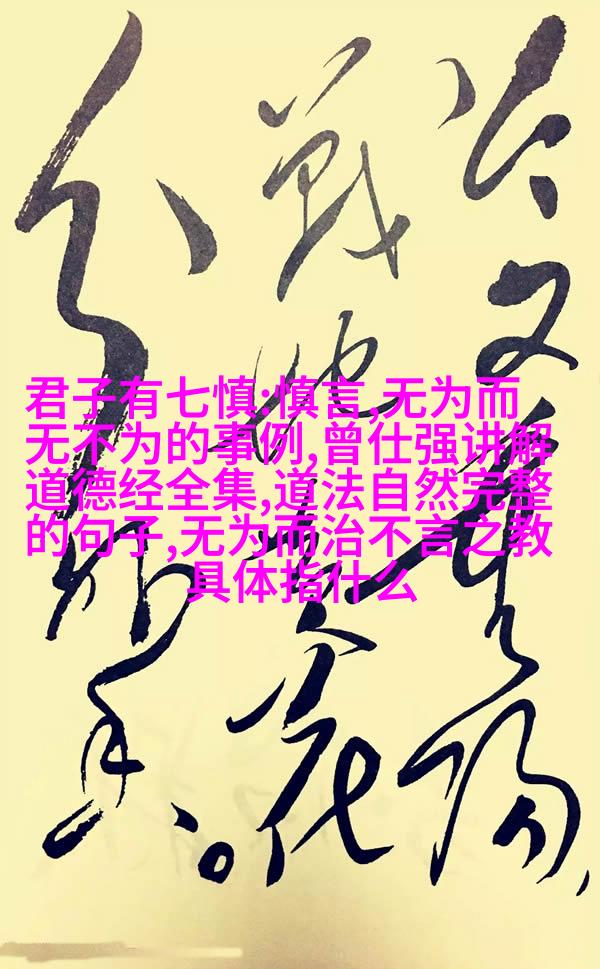 君子有七慎:慎言,无为而
无不为的事例,曾仕强讲解
道德经全集,道法自然完整
的句子,无为而治不言之教
具体指什么
今又重阳,
战地黄花
分外香。